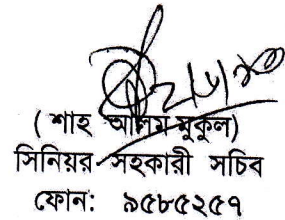 ( শাহ আলিম মুকুল)
সিনিয়র সহকারী সচিব
ফোন: ৯৫৮৫২৫৭